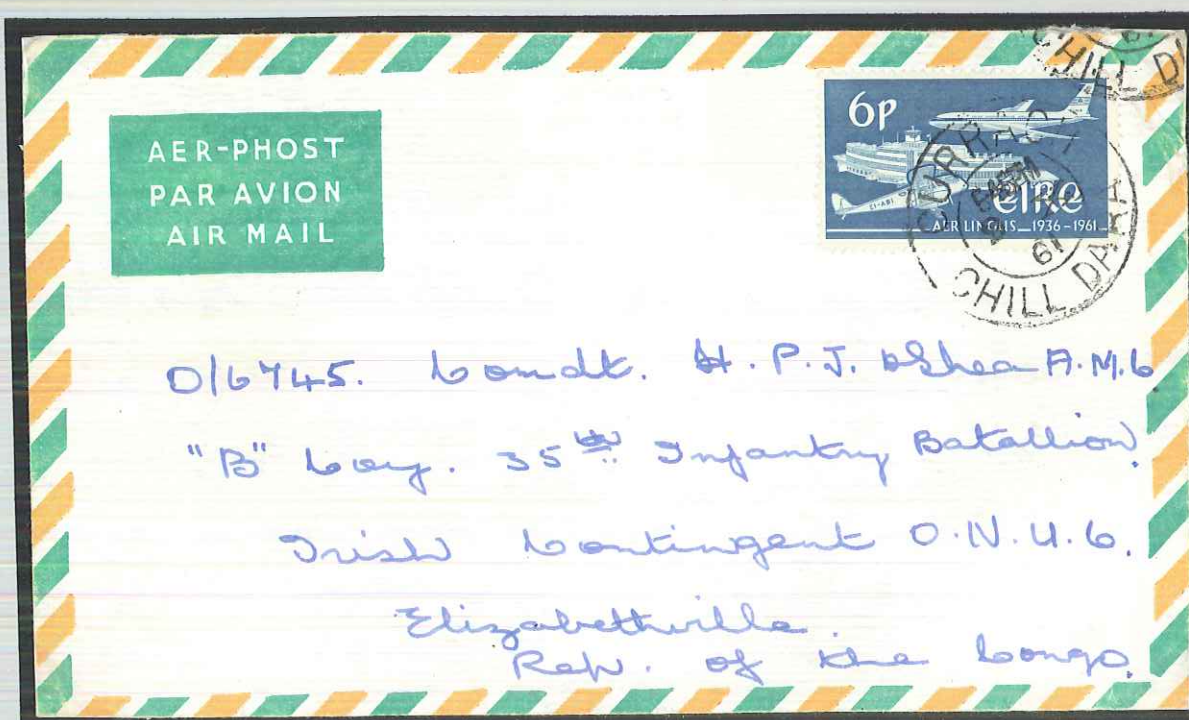 AER-PHOST
PAR AVION
AIR MAIL
6p
EI-ABI
éIRe
AER LINGUS 1936-1961
CURRACH
61
CHILL DARA
CHILL D
O/6745. Comdt. H. P. J. O'Shea A.M.C
"B" Coy. 35th Infantry Batallion.
Irish Contingent O.N.U.C.
Elizabethville.
Rep. of the Congo.